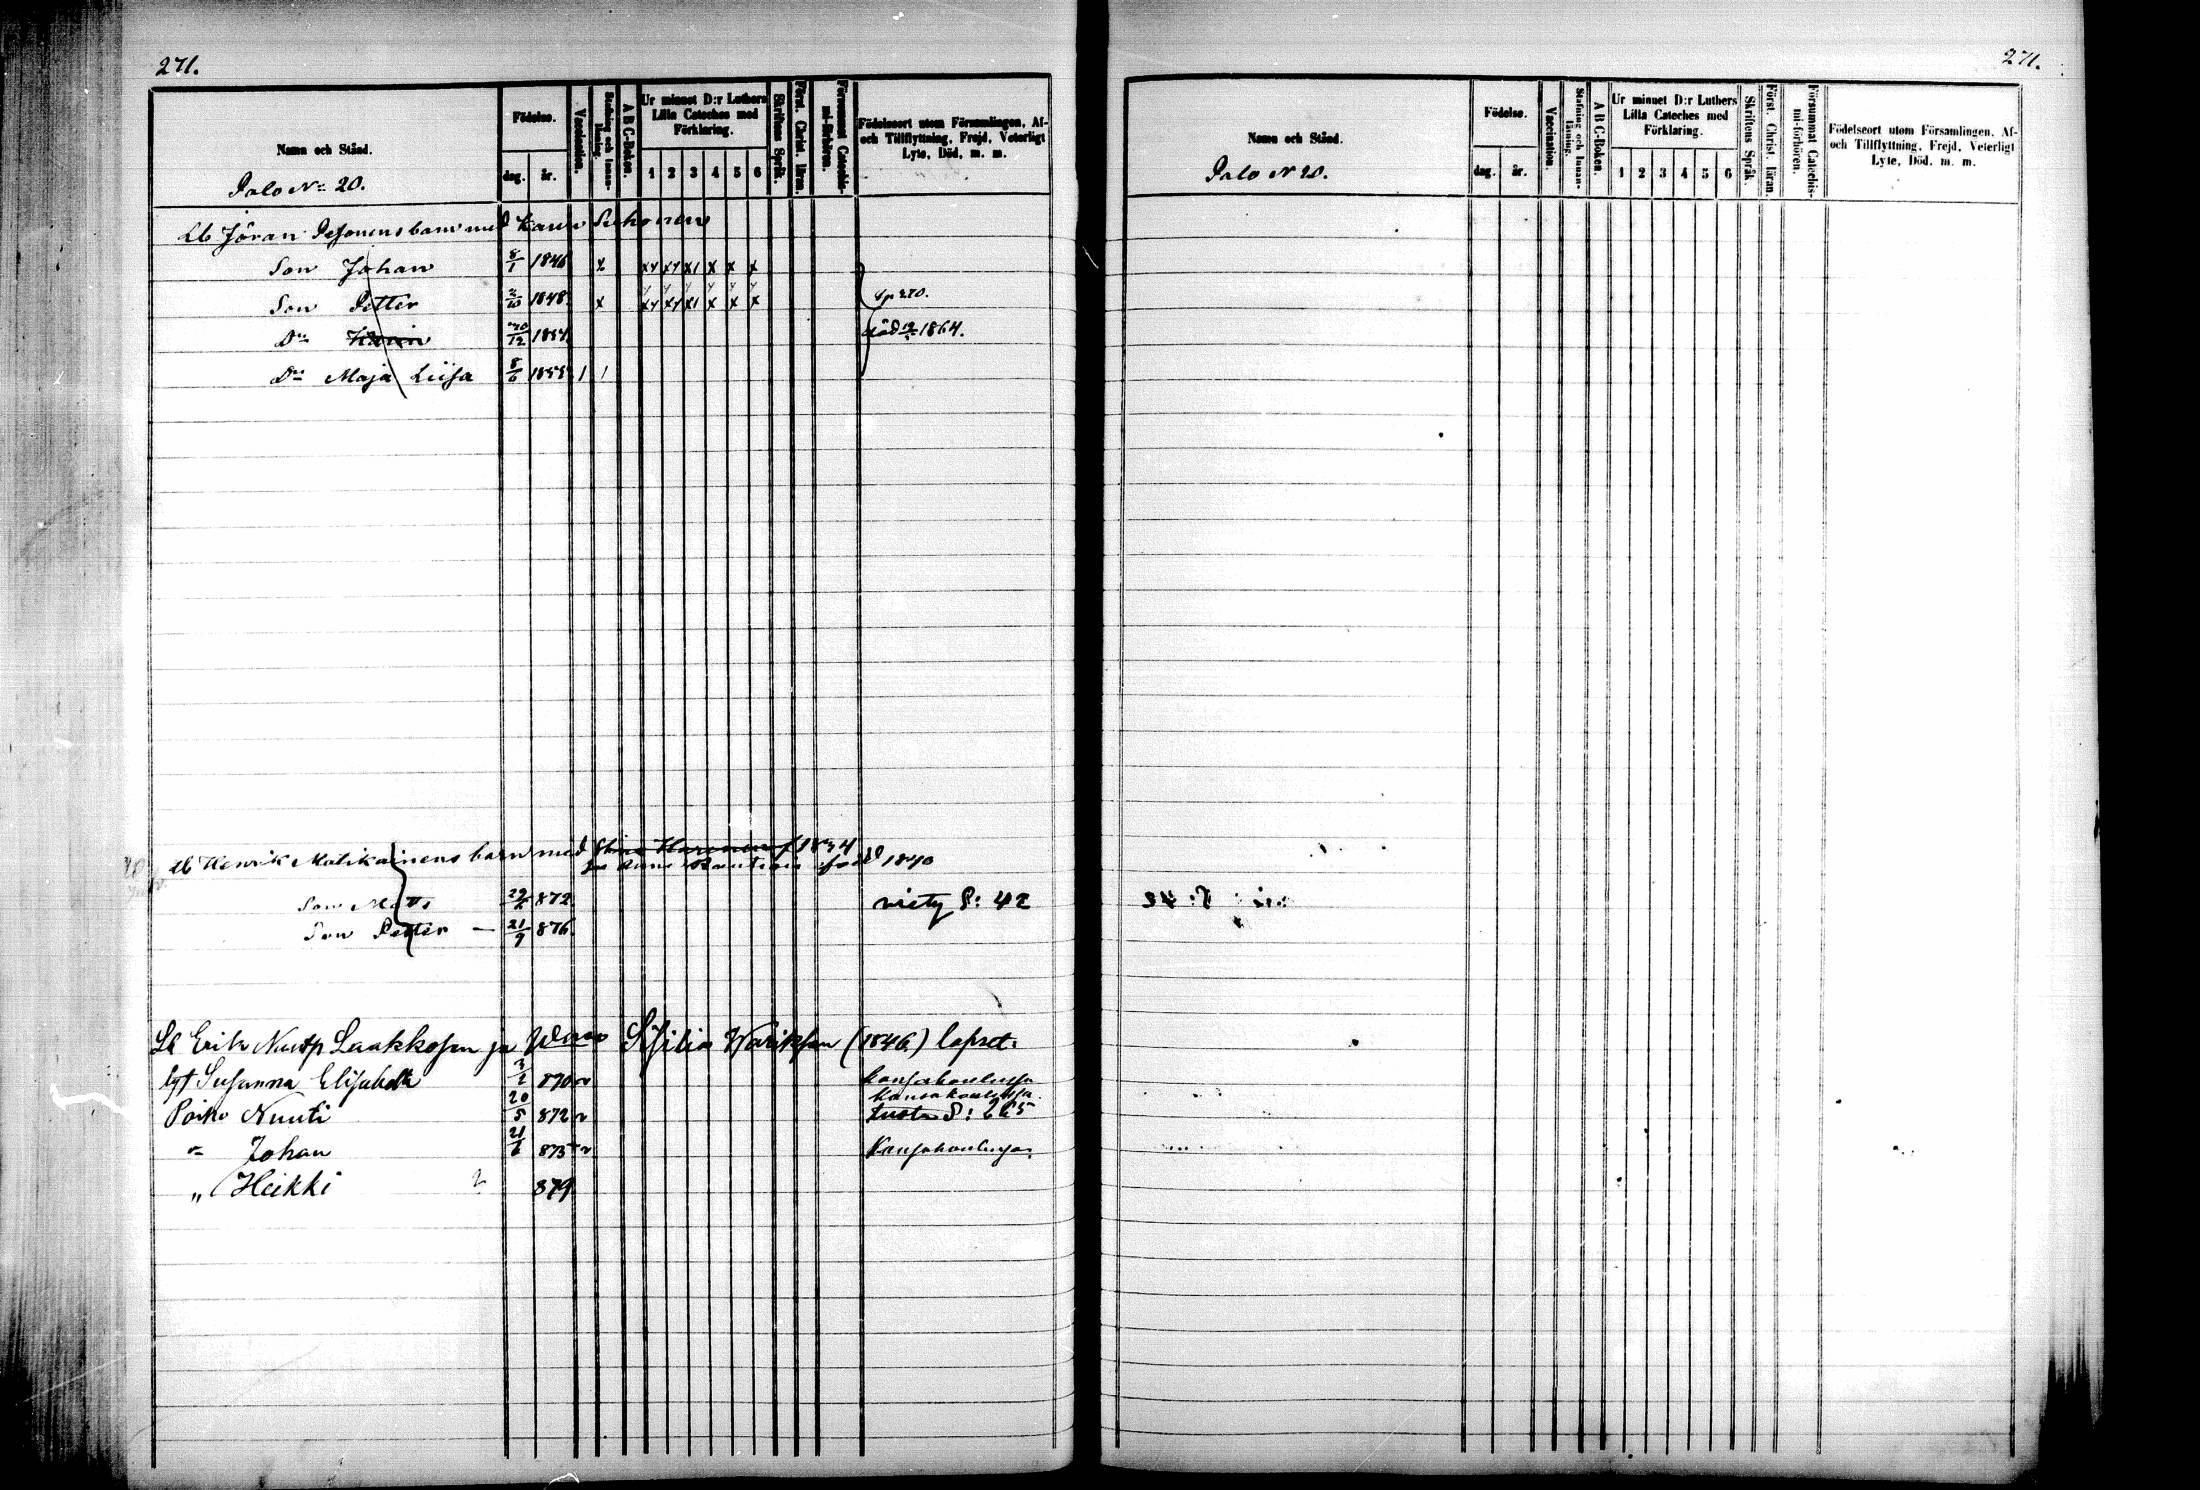 271.
Namn och Stånd.
Palo No 20.
Födelse.
dag. år.
Vaccination.
Stafning och Innanläsning.
A B C-Boken.
Ur minnet D:r Luthers Lilla Cateches med Förklaring.
1 2 3 4 5 6
Skriftens Språk.
Först. Christ. läran.
Försummat Catechismi-förhören.
Födelseort utom Församlingen, Af- och Tillflyttning, Frejd, Veterligt Lyte, Död, m. m.
Lb Jöran Pesonens barn med Karin Suhonen
Son Johan 8/1 1846 x xy xy x1 x x x
Son Petter 2/10 1848 x xy xy x1 x x x sp 270.
Dr Karin 20/12 1851 död 1864.
Dr Maja Lisa 8/6 1855 1 1
Lb Henrik Matikainens barn med Stina 1834
Anna född 1840
Son Matts 872 viety S: 42
Son Petter — 21/9 876
Lb Erik Nuutp Laakkosen ja Waimo Sesilia (1846) lapset.
tyt Susanna Elisabeth 870 v kansakoulussa
kansakoulussa
Poika Nuuti 20/5 872 v S: 265
" Johan 21/6 873 v Kansakoulussa
" Heikki 879
271.
Namn och Stånd.
Palo N 20.
Födelse.
dag. år.
Vaccination.
Stafning och Innanläsning.
A B C-Boken.
Ur minnet D:r Luthers Lilla Cateches med Förklaring.
1 2 3 4 5 6
Skriftens Språk.
Först. Christ. läran.
Försummat Catechismi-förhören.
Födelseort utom Församlingen, Af- och Tillflyttning, Frejd, Veterligt Lyte, Död, m. m.